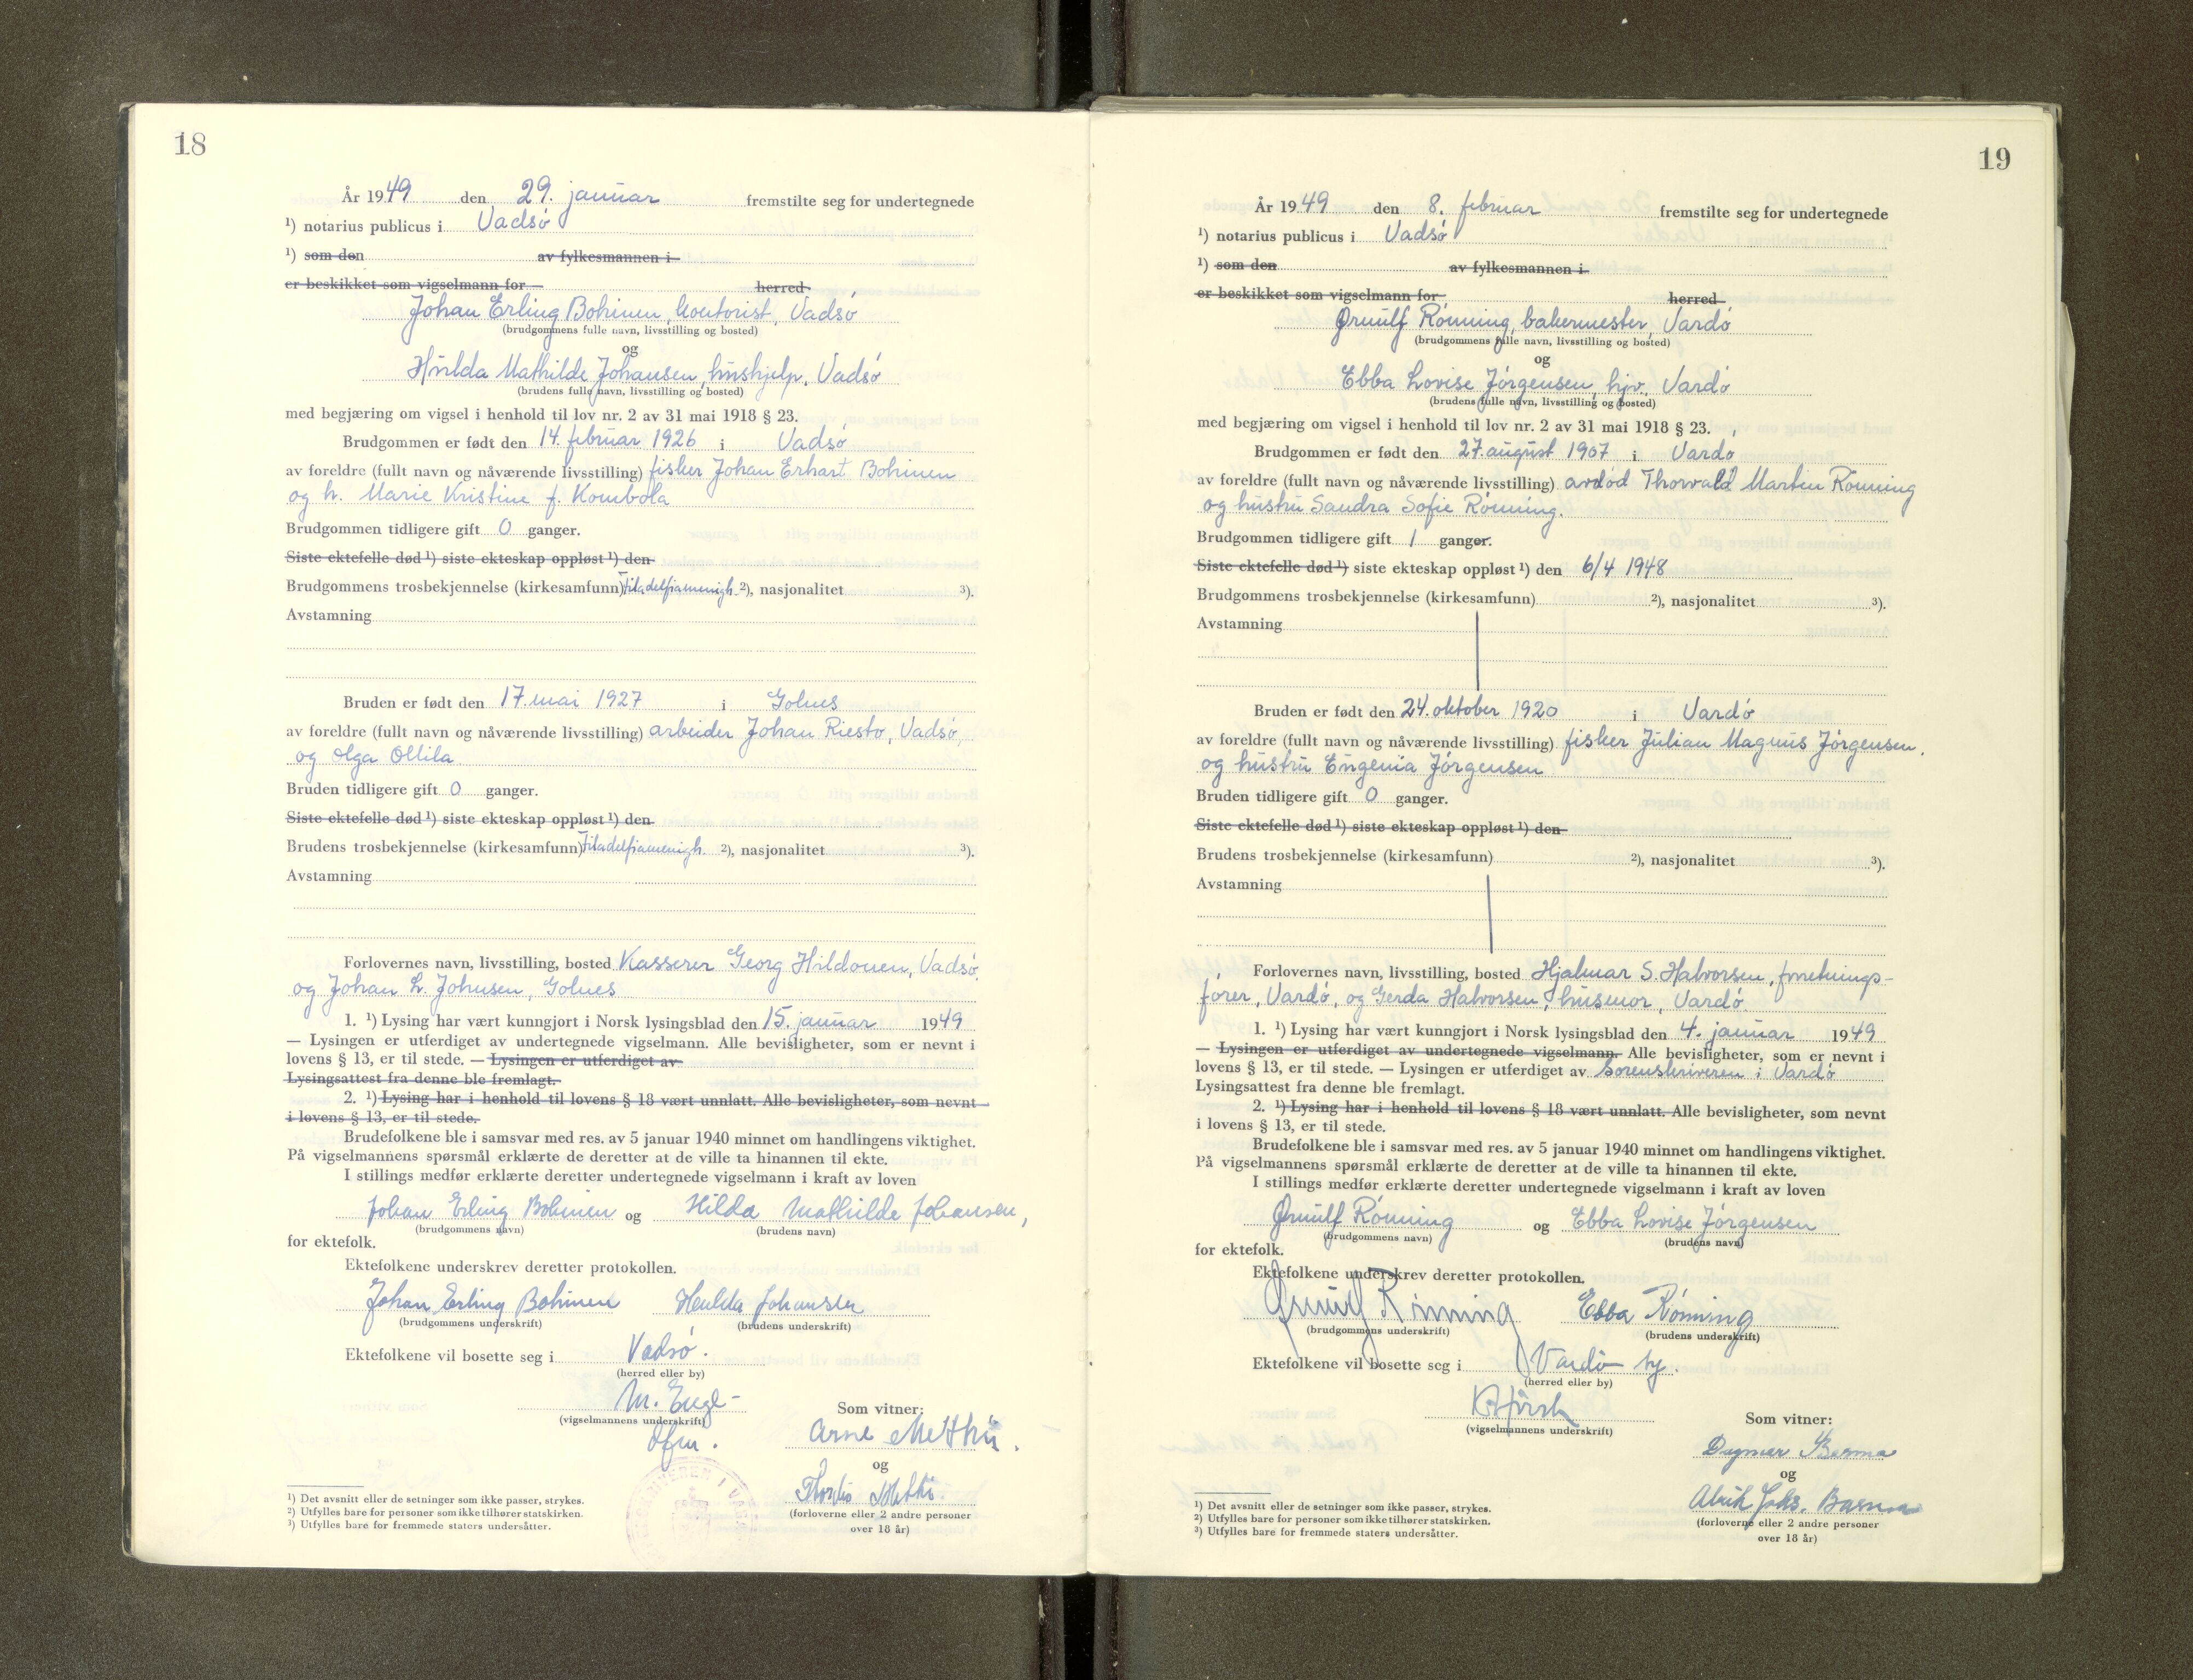 18
År 1949 den 29. januar fremstilte seg for undertegnede
¹) notarius publicus i Vadsø
¹) som den av fylkesmannen i
er beskikket som vigselmann for herred
Johan Erling Bohinen, kontorist, Vadsø
(brudgommens fulle navn, livsstilling og bosted)
og
Hulda Mathilde Johansen, hushjelp, Vadsø
(brudens fulle navn, livsstilling og bosted)
med begjæring om vigsel i henhold til lov nr. 2 av 31 mai 1918 § 23.
Brudgommen er født den 14. februar 1926 i Vadsø
av foreldre (fullt navn og nåværende livsstilling) fisker Johan Erhart Bohinen
og h. Marie Kristine f. Kombola
Brudgommen tidligere gift 0 ganger.
Siste ektefelle død ¹) siste ekteskap oppløst ¹) den
Brudgommens trosbekjennelse (kirkesamfunn) Filadelfiamenigh. ²), nasjonalitet ³).
Avstamning
Bruden er født den 17. mai 1927 i Golnes
av foreldre (fullt navn og nåværende livsstilling) arbeider Johan Riesto, Vadsø,
og Olga Ollila
Bruden tidligere gift 0 ganger.
Siste ektefelle død ¹) siste ekteskap oppløst ¹) den
Brudens trosbekjennelse (kirkesamfunn) Filadelfiamenigh. ²), nasjonalitet ³).
Avstamning
Forlovernes navn, livsstilling, bosted Kasserer Georg Hildonen, Vadsø,
og Johan L. Johnsen, Golnes
1. ¹) Lysing har vært kunngjort i Norsk lysingsblad den 15. januar 1949
— Lysingen er utferdiget av undertegnede vigselmann. Alle bevisligheter, som er nevnt i
lovens § 13, er til stede. — Lysingen er utferdiget av
Lysingsattest fra denne ble fremlagt.
2. ¹) Lysing har i henhold til lovens § 18 vært unnlatt. Alle bevisligheter, som nevnt
i lovens § 13, er til stede.
Brudefolkene ble i samsvar med res. av 5 januar 1940 minnet om handlingens viktighet.
På vigselmannens spørsmål erklærte de deretter at de ville ta hinannen til ekte.
I stillings medfør erklærte deretter undertegnede vigselmann i kraft av loven
Johan Erling Bohinen og Hilda Mathilde Johansen,
(brudgommens navn) (brudens navn)
for ektefolk.
Ektefolkene underskrev deretter protokollen.
Johan Erling Bohinen Hulda Johansen
(brudgommens underskrift) (brudens underskrift)
Ektefolkene vil bosette seg i Vadsø.
(herred eller by)
(vigselmannens underskrift)
Som vitner:
Arne Methi.
og
Thordis Methi
(forloverne eller 2 andre personer
over 18 år)
¹) Det avsnitt eller de setninger som ikke passer, strykes.
²) Utfylles bare for personer som ikke tilhører statskirken.
³) Utfylles bare for fremmede staters undersåtter.
19
År 1949 den 8. februar fremstilte seg for undertegnede
¹) notarius publicus i Vadsø
¹) som den av fylkesmannen i
er beskikket som vigselmann for herred
Ørnulf Rønning, bakermester, Vardø
(brudgommens fulle navn, livsstilling og bosted)
og
Ebba Lovise Jørgensen, hjv., Vardø
(brudens fulle navn, livsstilling og bosted)
med begjæring om vigsel i henhold til lov nr. 2 av 31 mai 1918 § 23.
Brudgommen er født den 27. august 1907 i Vardø
av foreldre (fullt navn og nåværende livsstilling) avdød Thorvald Martin Rønning
og hustru Sandra Sofie Rønning.
Brudgommen tidligere gift 1 ganger.
Siste ektefelle død ¹) siste ekteskap oppløst ¹) den 6/4 1948
Brudgommens trosbekjennelse (kirkesamfunn) ²), nasjonalitet ³).
Avstamning
Bruden er født den 24. oktober 1920 i Vardø
av foreldre (fullt navn og nåværende livsstilling) fisker Julian Magnus Jørgensen.
og hustru Eugenia Jørgensen
Bruden tidligere gift 0 ganger.
Siste ektefelle død ¹) siste ekteskap oppløst ¹) den
Brudens trosbekjennelse (kirkesamfunn) ²), nasjonalitet ³).
Avstamning
Forlovernes navn, livsstilling, bosted Hjalmar S. Halvorsen, forretnings-
fører, Vardø, og Gerda Halvorsen, husmor, Vardø.
1. ¹) Lysing har vært kunngjort i Norsk lysingsblad den 4. januar 1949
— Lysingen er utferdiget av undertegnede vigselmann. Alle bevisligheter, som er nevnt i
lovens § 13, er til stede. — Lysingen er utferdiget av Sorenskriveren i Vardø
Lysingsattest fra denne ble fremlagt.
2. ¹) Lysing har i henhold til lovens § 18 vært unnlatt. Alle bevisligheter, som nevnt
i lovens § 13, er til stede.
Brudefolkene ble i samsvar med res. av 5 januar 1940 minnet om handlingens viktighet.
På vigselmannens spørsmål erklærte de deretter at de ville ta hinannen til ekte.
I stillings medfør erklærte deretter undertegnede vigselmann i kraft av loven
Ørnulf Rønning og Ebba Lovise Jørgensen
(brudgommens navn) (brudens navn)
for ektefolk.
Ektefolkene underskrev deretter protokollen.
Ørnulf Rønning Ebba Rønning
(brudgommens underskrift) (brudens underskrift)
Ektefolkene vil bosette seg i Vardø by.
(herred eller by)
(vigselmannens underskrift)
Som vitner:
Dagmar Basma
og
Alrik Johs. Basma
(forloverne eller 2 andre personer
over 18 år)
¹) Det avsnitt eller de setninger som ikke passer, strykes.
²) Utfylles bare for personer som ikke tilhører statskirken.
³) Utfylles bare for fremmede staters undersåtter.